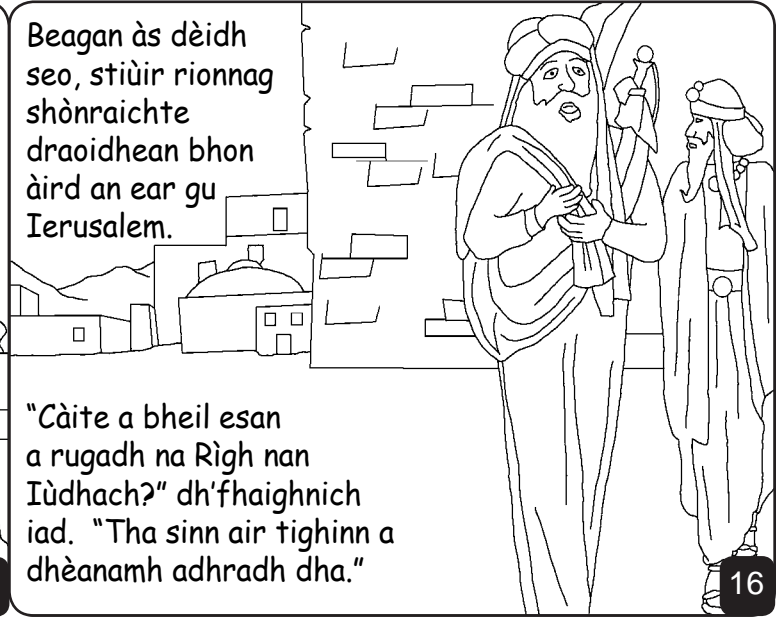 Beagan às dèidh
seo, stiùir rionnag
shònraichte
draoidhean bhon
àird an ear gu
Ierusalem.
“Càite a bheil esan
a rugadh na Rìgh nan
Iùdhach?” dh’fhaighnich
iad.  “Tha sinn air tighinn a
dhèanamh adhradh dha.”
16